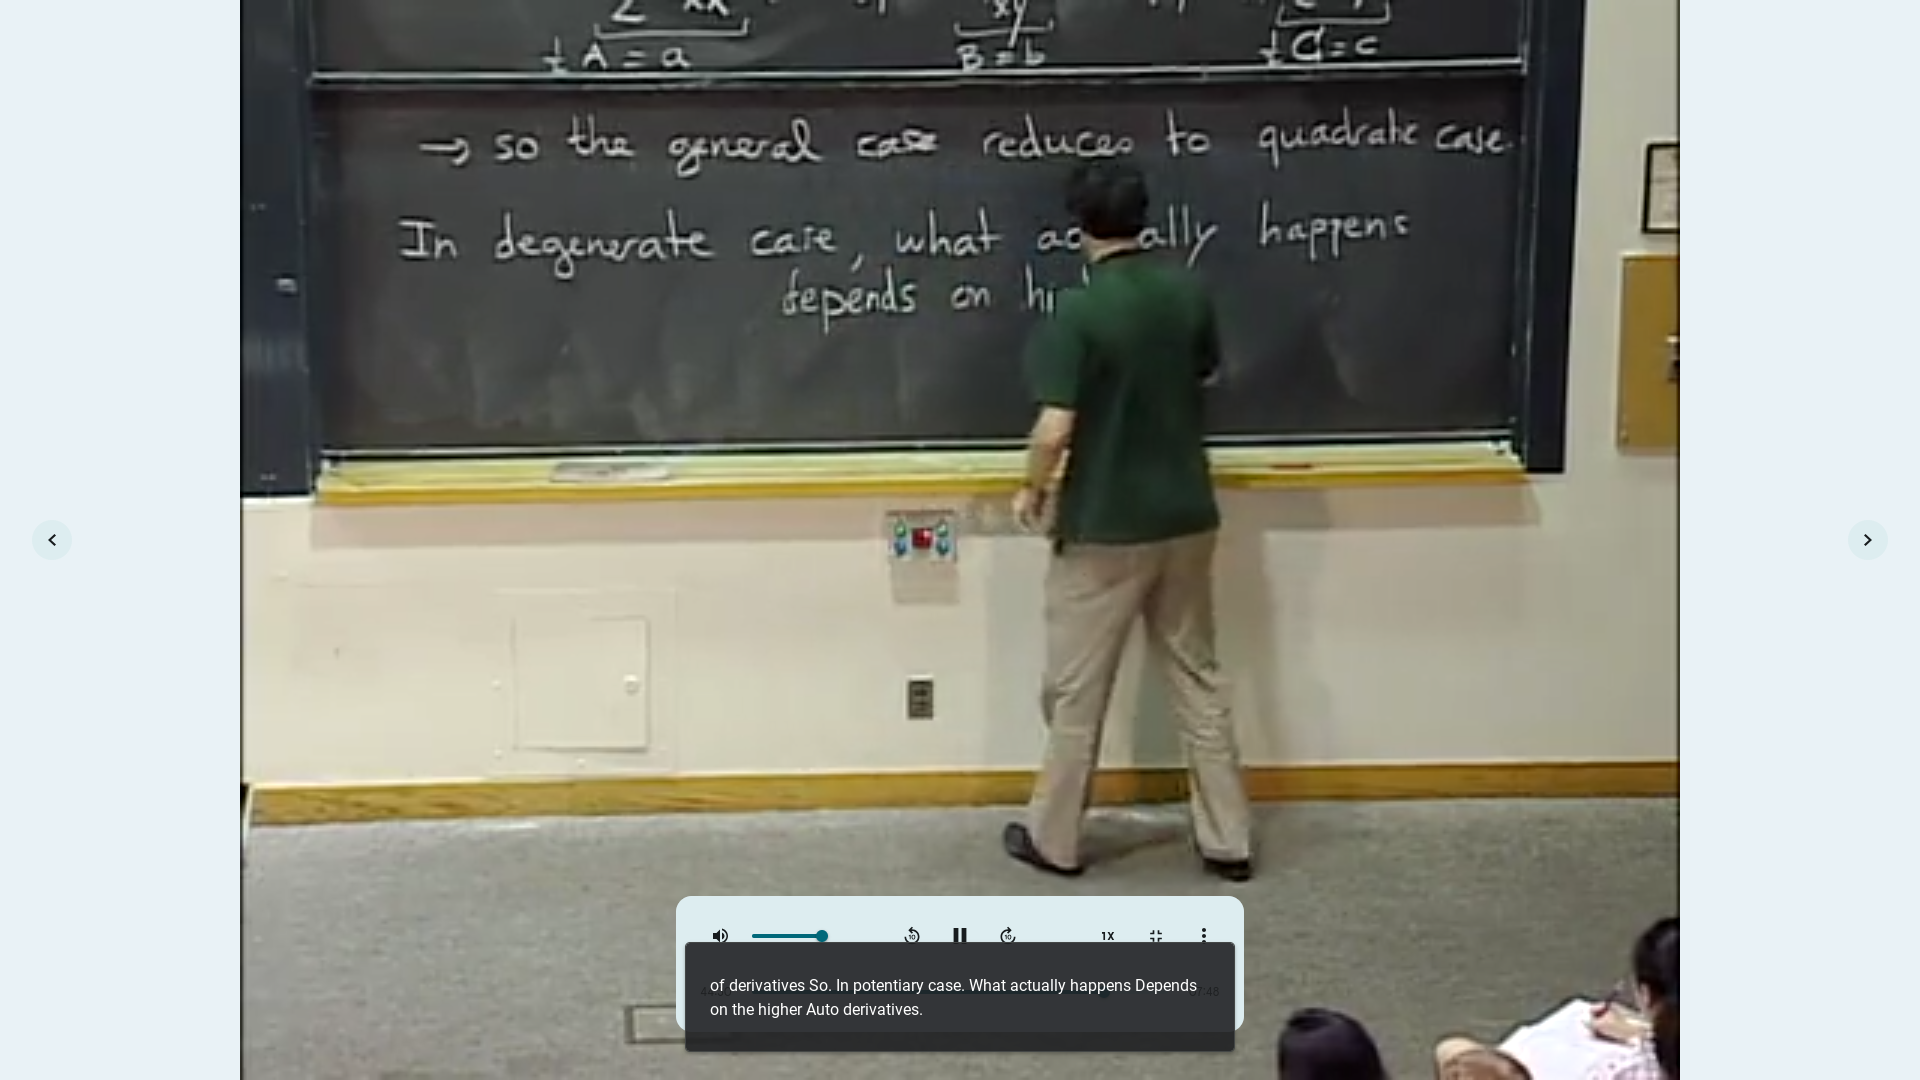 xx
xy
½ A = a
B = b
½ C = c
→ so the general case reduces to quadratic case.
In degenerate case, what happens
depends on
1X
of derivatives So. In potentiary case. What actually happens Depends
on the higher Auto derivatives.